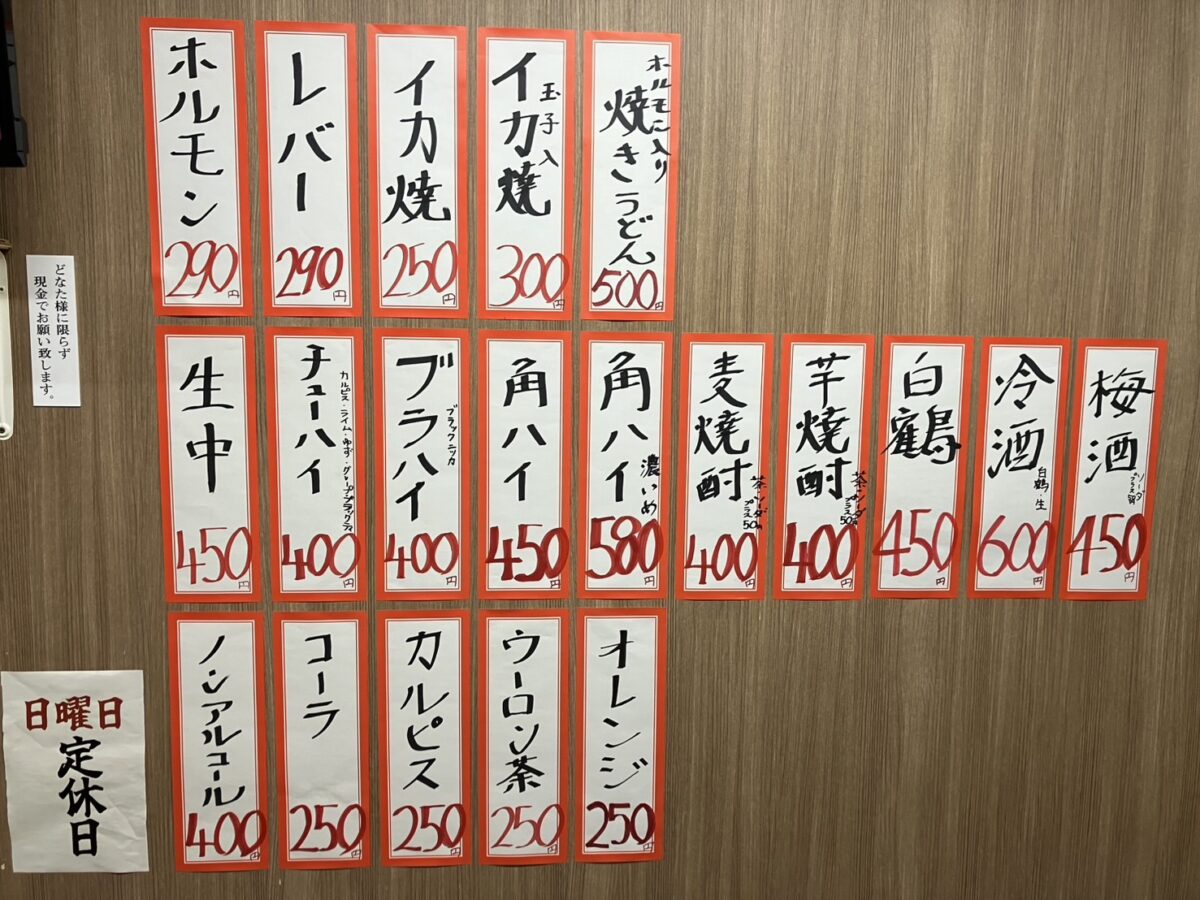 ホルモン
290円
レバー
290円
イカ焼
250円
イカ焼
玉子入
300円
ホルモン入り
焼きうどん
500円
生中
450円
チューハイ
カルピス・ライム・ゆず・グレープ・ブラックティ
400円
ブラハイ
ブラックニッカ
400円
角ハイ
450円
角ハイ
濃いめ
580円
麦焼酎
茶・ソーダ
プラス50円
400円
芋焼酎
茶・ソーダ
プラス50円
400円
白鶴
450円
冷酒
白鶴・生
600円
梅酒
ソーダ
450円
ノンアルコール
400円
コーラ
250円
カルピス
250円
ウーロン茶
250円
オレンジ
250円
どなた様に限らず
現金でお願い致します。
日曜日
定休日